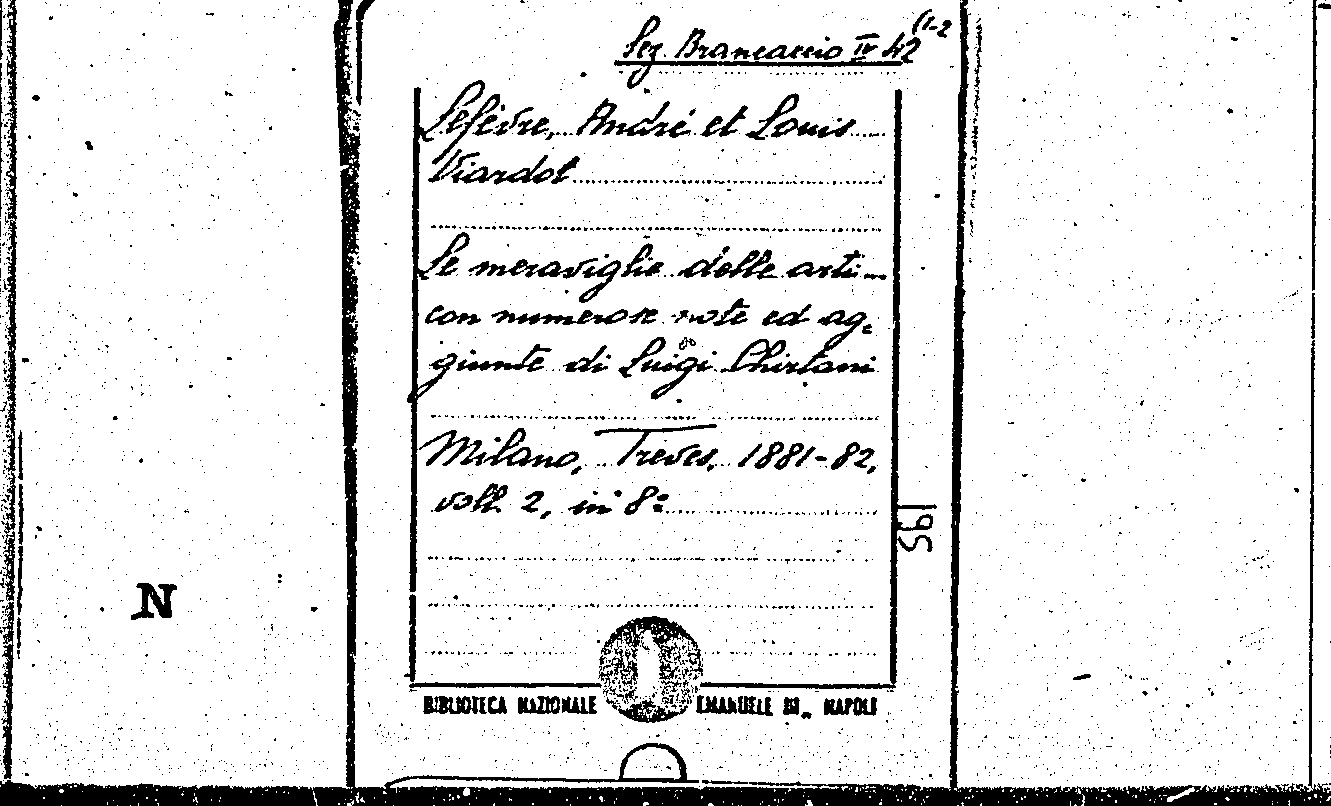 Sez. Brancaccio IV 42 (1-2
Lefèvre, André et Louis
Viardot
Le meraviglie delle arti...
con numerose note ed ag-
giunte di Luigi Chirtani
Milano, Treves, 1881-82,
voll. 2, in 8°
195
N
BIBLIOTECA NAZIONALE EMANUELE III„ NAPOLI